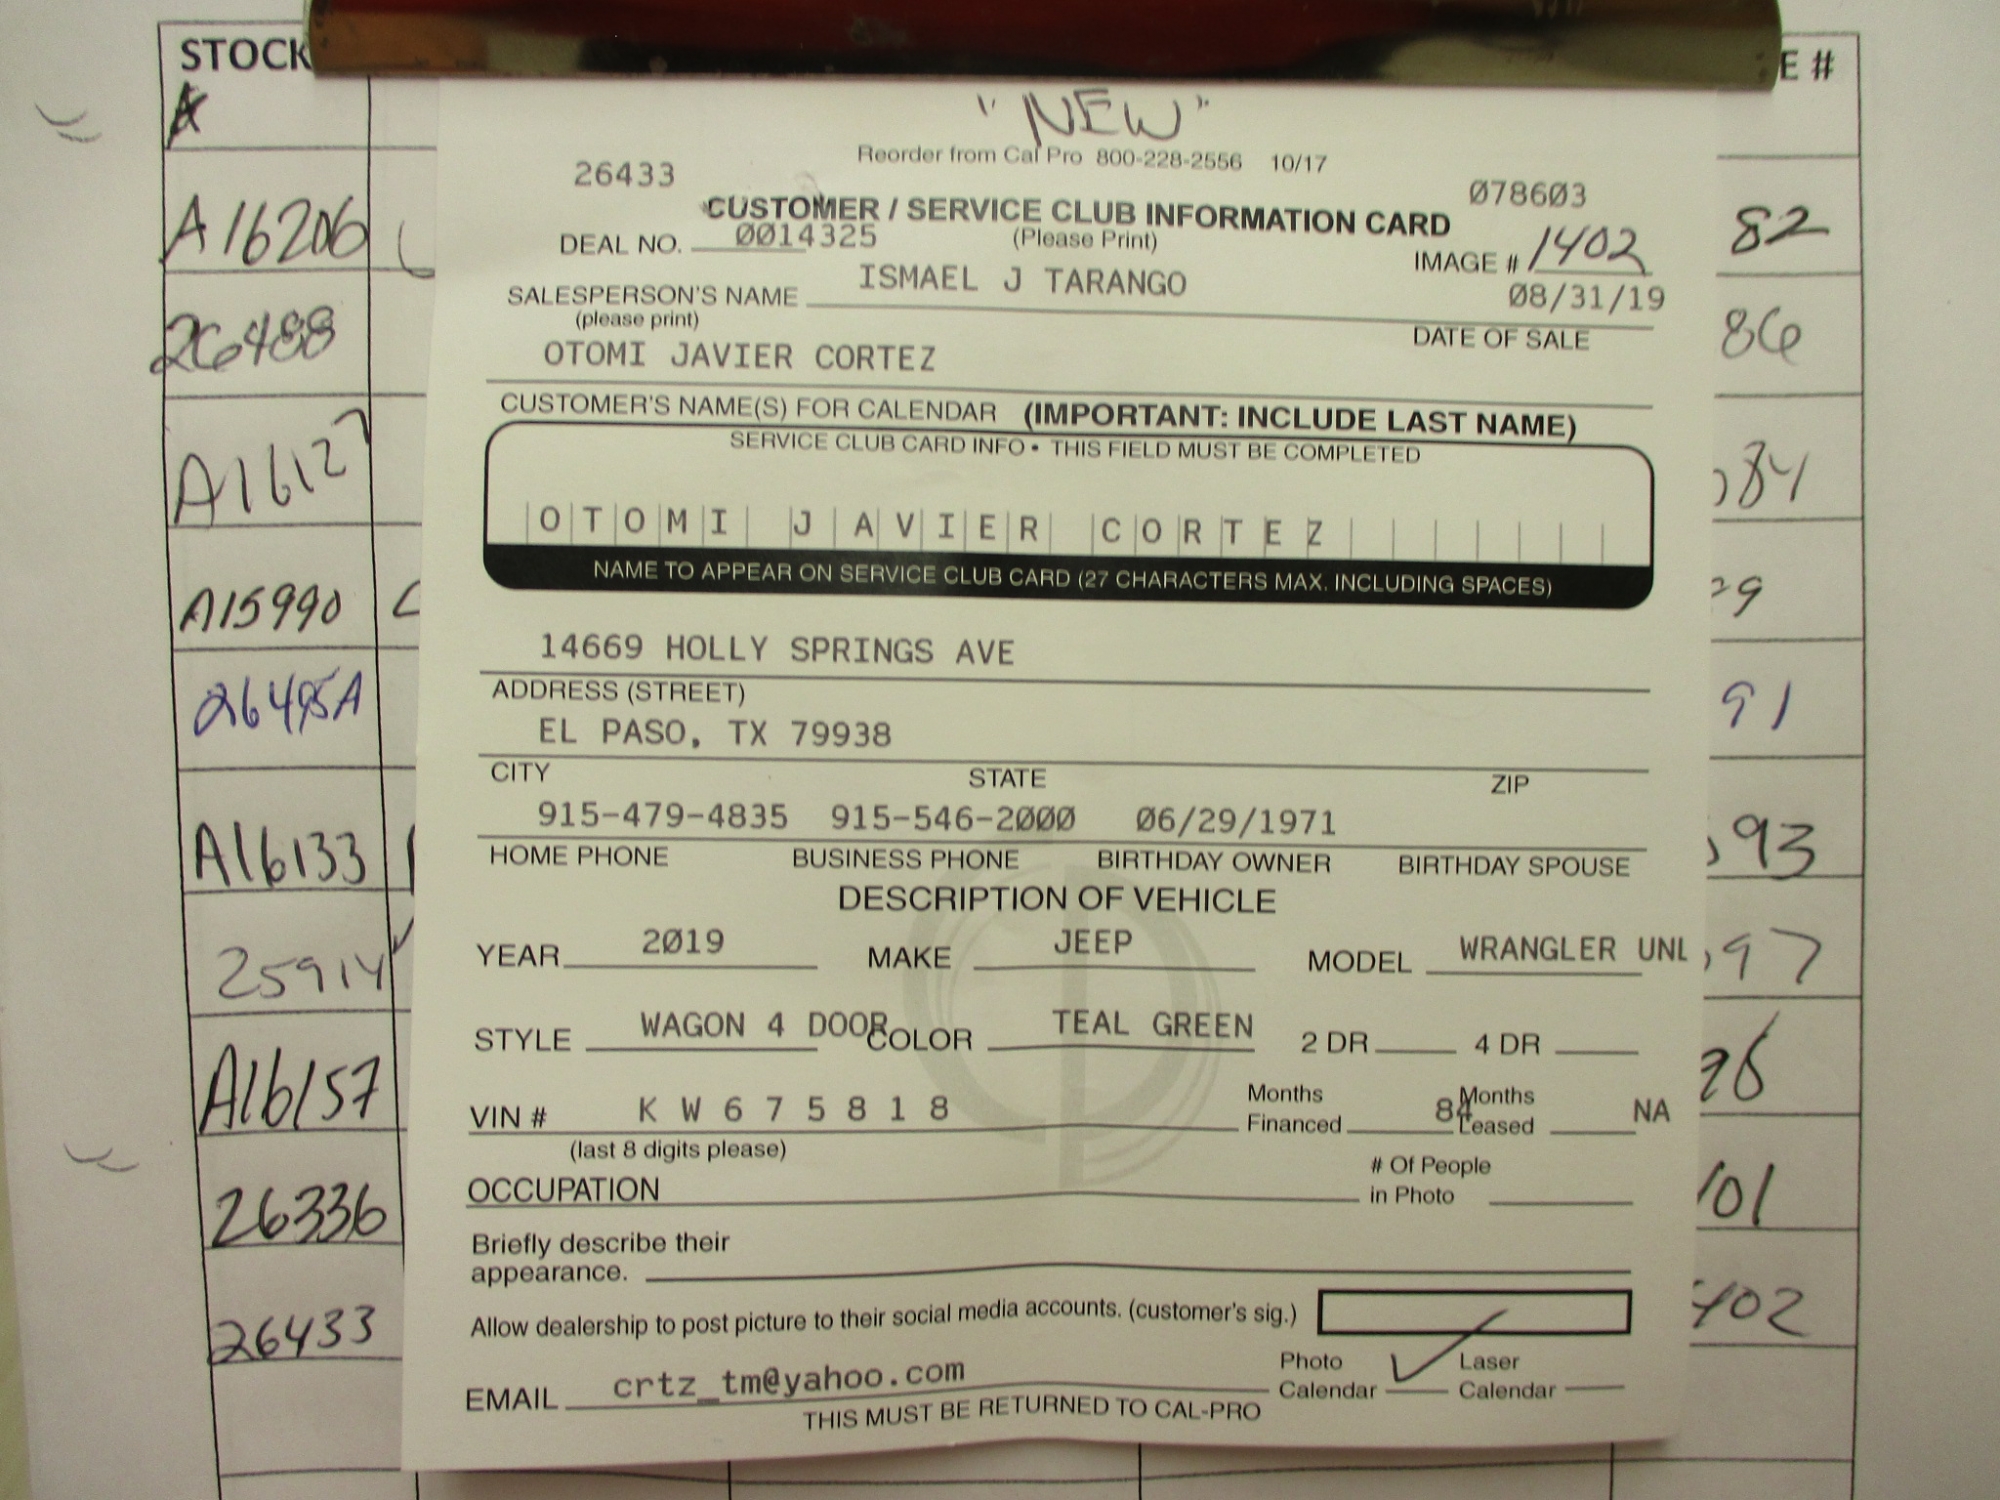 STOCK
E #
"NEW"
Reorder from Cal Pro 800-228-2556 10/17
26433
078603
CUSTOMER / SERVICE CLUB INFORMATION CARD
DEAL NO. 0014325 (Please Print)
IMAGE # 1402
SALESPERSON'S NAME ISMAEL J TARANGO 08/31/19
(please print) DATE OF SALE
OTOMI JAVIER CORTEZ
CUSTOMER'S NAME(S) FOR CALENDAR (IMPORTANT: INCLUDE LAST NAME)
SERVICE CLUB CARD INFO • THIS FIELD MUST BE COMPLETED
OTOMI JAVIER CORTEZ
NAME TO APPEAR ON SERVICE CLUB CARD (27 CHARACTERS MAX. INCLUDING SPACES)
14669 HOLLY SPRINGS AVE
ADDRESS (STREET)
EL PASO, TX 79938
CITY STATE ZIP
915-479-4835 915-546-2000 06/29/1971
HOME PHONE BUSINESS PHONE BIRTHDAY OWNER BIRTHDAY SPOUSE
DESCRIPTION OF VEHICLE
YEAR 2019 MAKE JEEP MODEL WRANGLER UNL
STYLE WAGON 4 DOOR COLOR TEAL GREEN 2 DR 4 DR
VIN # K W 6 7 5 8 1 8 Months Financed 84 Months Leased NA
(last 8 digits please)
OCCUPATION # Of People in Photo
Briefly describe their
appearance.
Allow dealership to post picture to their social media accounts. (customer's sig.)
EMAIL crtz_tm@yahoo.com Photo Calendar Laser Calendar
THIS MUST BE RETURNED TO CAL-PRO
A16206
26488
A16127
A15990
26495A
A16133
25914
A16157
26336
26433
82
86
84
9
91
93
97
96
101
402